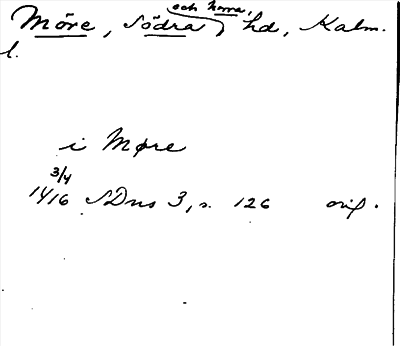 Möre, Södra och Norra, hd, Kalm.
l.
i Møre
3/4
1416 SDns 3, s. 126 orig.